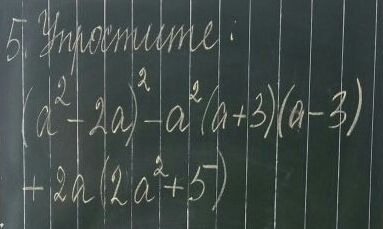 5. Упростите:
(a² - 2a)² - a² (a+3)(a-3)
+ 2a (2a² + 5)